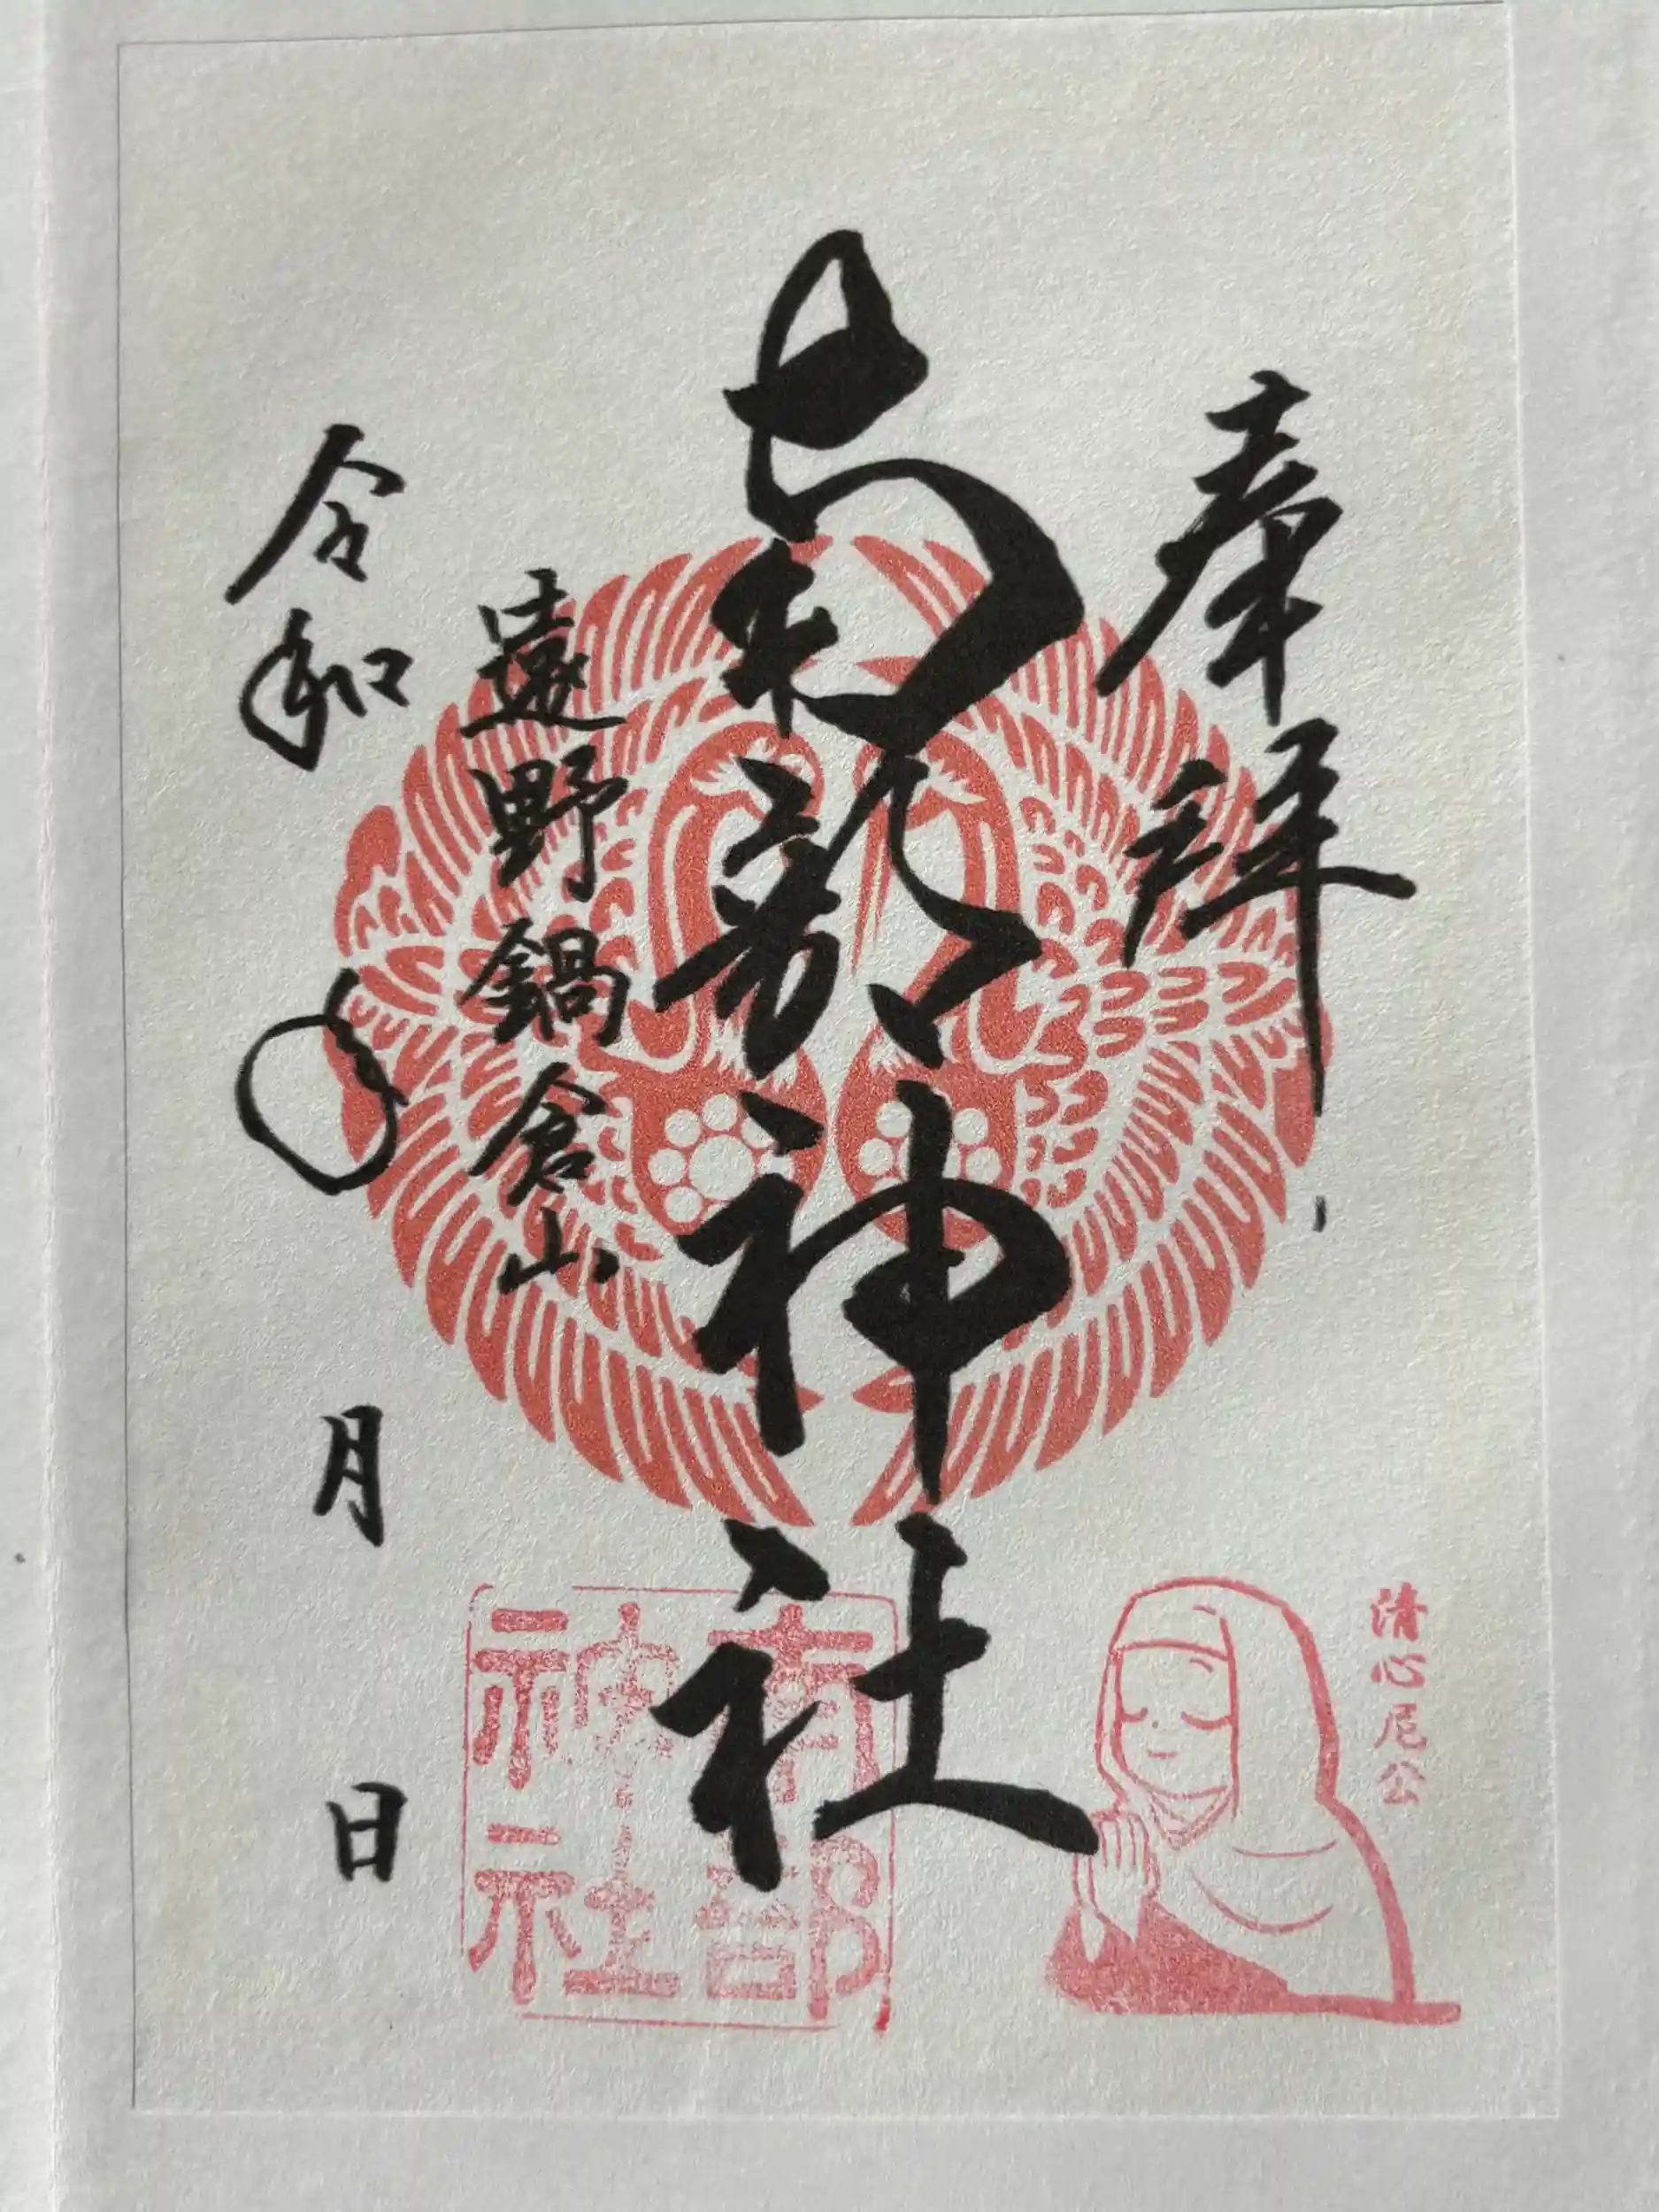 奉拝
南部神社
遠野鍋倉山
令和 年 月 日
清心尼公
南部
神社